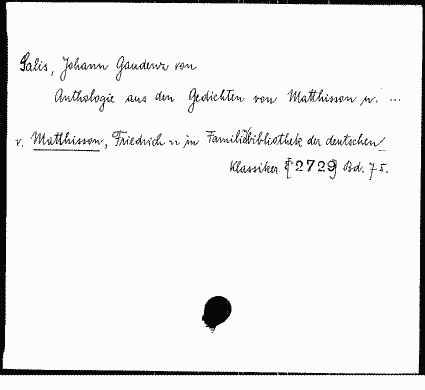 Salis, Johann Gaudenz von
Anthologie aus den Gedichten von Matthisson u. ...
v. Matthisson, Friedrich v. in Familienbibliothek der deutschen
Klassiker [2729] Bd. 75.